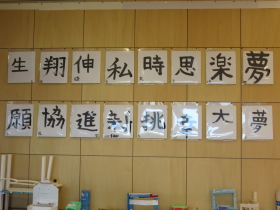 生 翔 伸 私 時 思 楽 夢
願 協 進 創 挑 大 夢